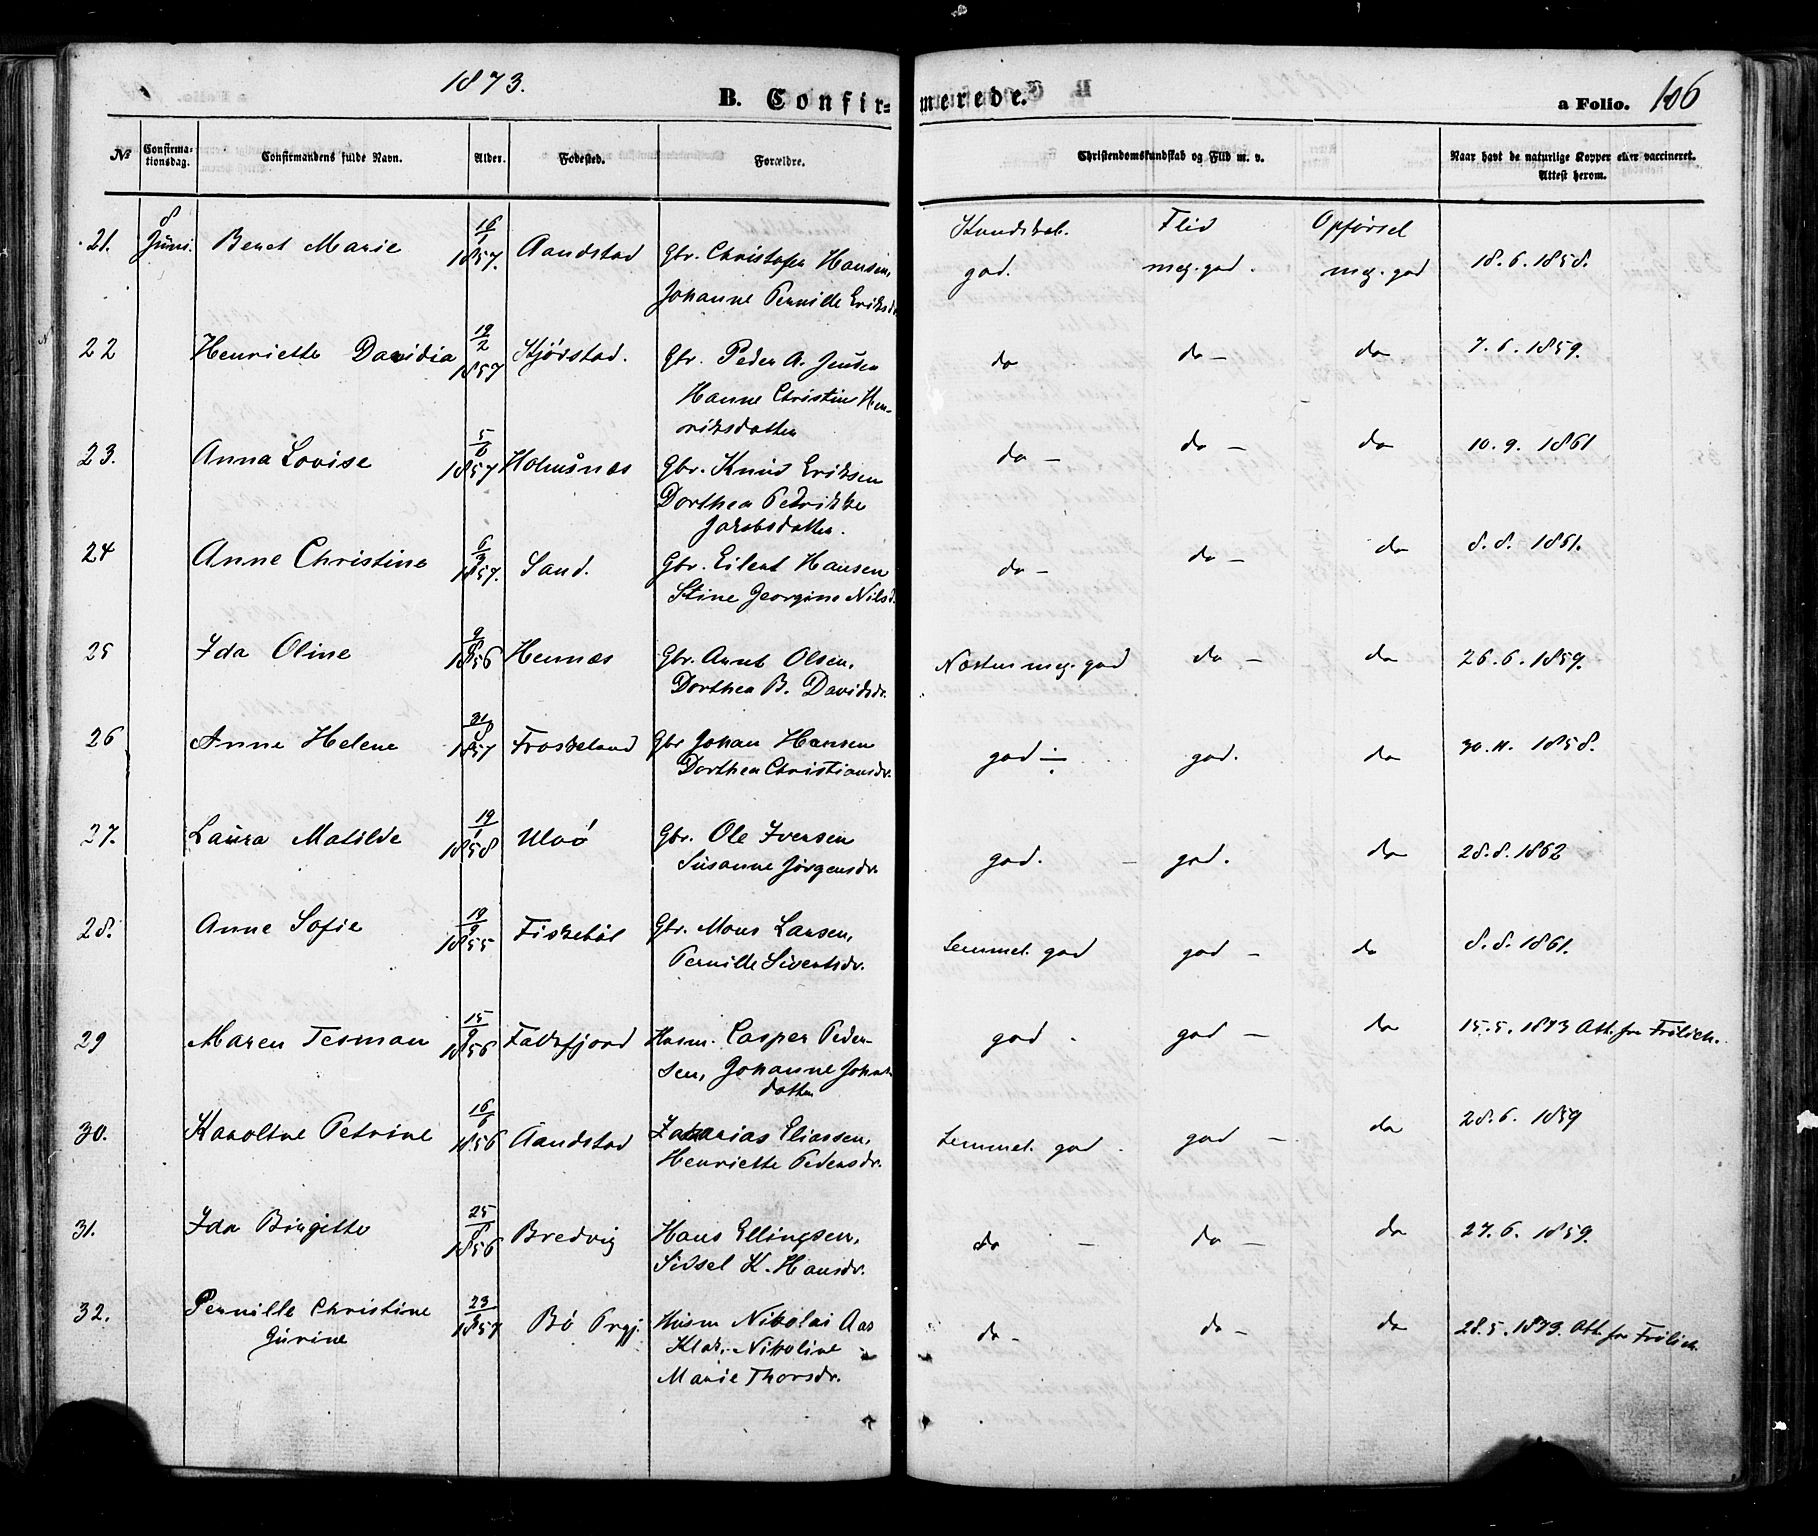 1873.
B. Confirmerede.
a Folio. 106
No Confirmationsdag. Confirmandens fulde Navn. Alder. Fødested. Forældre. Christendomskundskab og Flid m. v. Naar havt de naturlige Kopper eller vaccineret. Attest herom.
21. 8 Juni. Beret Marie 16/1 1857. Aandstad Gbr. Christofer Hansen, Kundskab. Flid Opførsel
Johanne Pernille Eriksd. god. meg. god. meg. god 18.6.1858.
22 Henriette Davidia 19/2 1857 Stjørstad. Gbr. Peder A. Jensen do do - do 7.6.1859.
Hanne Christine Hen-
riksdatter
23. Anna Lovise 5/6 1857 Holmsnæs Gbr. Knud Eriksen do - do - do 10.9.1861
Dorthea Petrikke
Jakobsdatter.
24 Anne Christine 6/3 1857. Sand. Gbr. Eilert Hansen do - do - do 8.8.1861.
Stine Georgine Nilsd.
25 Ida Oline 9/8 1856 Hennæs Gbr. Arnt Olsen, Næsten meg. god do - do 26.6.1859.
Dorthea B. Davidsdr.
26 Anne Helene 1857 Froskeland Gbr Johan Hansen god ÷ god. do 30.11.1858.
Dorthea Christiansdr.
27. Laura Matilde 19/1 1858 Ulvø Gbr. Ole Iversen god. - god. do 28.8.1862
Susanne Jørgensdr.
28. Anne Sofie 19/9 1855 Fiskebøl Gbr. Mons Larsen, Temmel. god god - do 8.8.1861.
Pernille Sivertsdr.
29 Maren Tesman 15/9 1856 Falkfjord Husm. Casper Peder- god. god - do 15.5.1873 Att. fra Frölich.
sen, Johanne Johns
datter
30. Karoline Petrine 16/6 1856 Aandstad Zakarias Eliassen, Temmel. god. god - do 28.6.1859
Henriette Pedersdr.
31. Ida Birgitte 25/8 1856 Bredvig Hans Ellingsen, do - do - do 27.6.1859.
Sidsel K. Hansdr.
32. Pernille Christine 1857 Bø Prgj. Husm Nikolai Aas do - do - do 28.5.1873. Att. fra Frölich.
Gurine Nikoline
Marie Thorsdr.